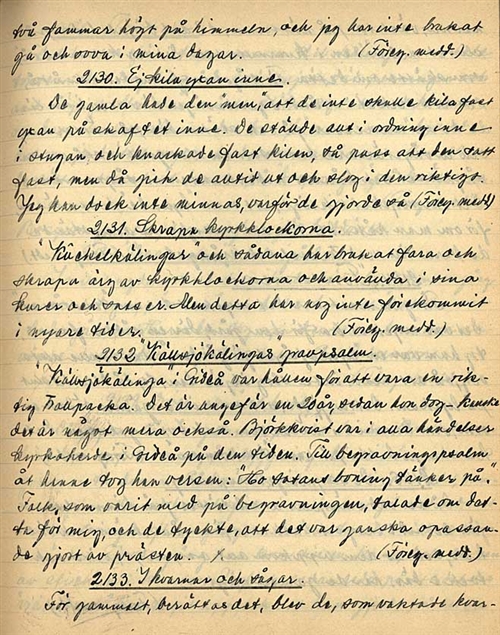 två famnar högt på himmeln, och jag har inte brukat
gå och sova i mina dagar. (Föreg. medd.)
2130. Ej kila yxan inne.
De gamla hade den "men", att de inte skulle kila fast
yxan på skaftet inne. De ställde allt i ordning inne
i stugan och knackade fast kilen, så pass att den satt
fast, men då gick de alltid ut och slog i den riktigt.
Jag kan dock inte minnas varför de gjorde så (Föreg. medd)
2131. Skrapa kyrkklockorna.
"Kuckelkälingar" och sådana har brukat fara och
skrapa ärg av kyrkklockorna och använda i sina
kurer och satser. Men detta har nog inte förekommit
i nyare tider. (Föreg. medd.)
2132 "Källsjökälingas" gravpsalm.
"Källsjökälinga" i Gideå var hållen för att vara en rik-
tig trollpacka. Det är ungefär en 20 år, sedan hon dog. Kanske
det är något mera också. Björkkvist var i alla händelser
kyrkoherde i Gideå på den tiden. Till begravningspsalm
åt henne tog han versen: "Ho satans boning tänker på."
Folk, som varit med på begravningen, talade om det-
ta för mig, och de tyckte, att det var ganska opassan-
de gjort av prästen. (Föreg. medd.)
2133. I kvarnar och sågar.
För gammalt, berättas det, blev de, som vaktade kvar-